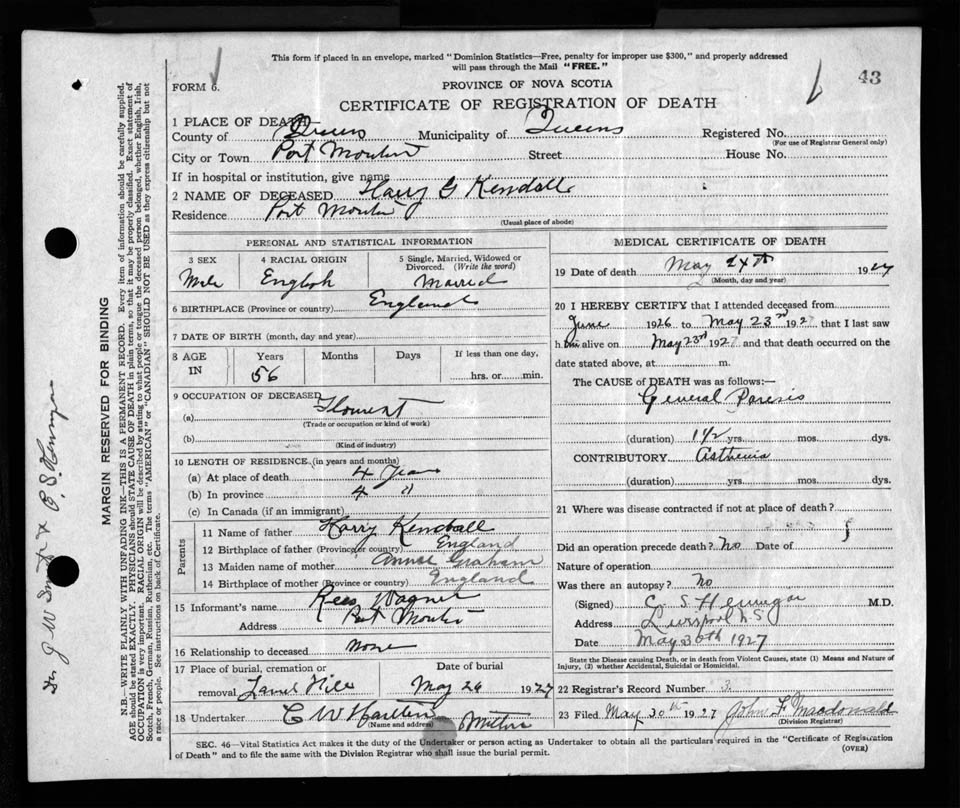 This form if placed in an envelope, marked "Dominion Statistics—Free, penalty for improper use $300," and properly addressed
will pass through the Mail "FREE."
43
FORM 6.
PROVINCE OF NOVA SCOTIA
CERTIFICATE OF REGISTRATION OF DEATH
1 PLACE OF DEATH
County of Queens Municipality of Queens Registered No.
(For use of Registrar General only)
City or Town Port Mouton Street House No.
If in hospital or institution, give name
2 NAME OF DECEASED Harry G Kendall
Residence Port Mouton
(Usual place of abode)
PERSONAL AND STATISTICAL INFORMATION
3 SEX 4 RACIAL ORIGIN 5 Single, Married, Widowed or
Divorced. (Write the word)
Male English Married
6 BIRTHPLACE (Province or country) England
7 DATE OF BIRTH (month, day and year)
8 AGE IN Years Months Days If less than one day,
56 hrs. or min.
9 OCCUPATION OF DECEASED
(a)
(Trade or occupation or kind of work)
(b)
(Kind of industry)
10 LENGTH OF RESIDENCE (in years and months)
(a) At place of death 4 Years
(b) In province 4 "
(c) In Canada (if an immigrant)
Parents
11 Name of father Harry Kendall
12 Birthplace of father (Province or country) England
13 Maiden name of mother Annie Graham
14 Birthplace of mother (Province or country) England
15 Informant's name Rees Wagner
Address Port Mouton
16 Relationship to deceased none
17 Place of burial, cremation or Date of burial
removal May 26 1927
18 Undertaker C W
(Name and address)
MEDICAL CERTIFICATE OF DEATH
19 Date of death May 24th 1927
(Month, day and year)
20 I HEREBY CERTIFY that I attended deceased from
June 1926 to May 23rd 1927 that I last saw
him alive on May 23rd 1927 and that death occurred on the
date stated above, at m.
The CAUSE of DEATH was as follows:—
General Paresis
(duration) 1 1/2 yrs. mos. dys.
CONTRIBUTORY Asthenia
(duration) yrs. mos. dys.
21 Where was disease contracted if not at place of death?
Did an operation precede death? No Date of
Nature of operation
Was there an autopsy? No
(Signed) C S Hennigar M.D.
Address Liverpool N.S
Date May 30th 1927
State the Disease causing Death, or in death from Violent Causes, state (1) Means and Nature of
Injury, (2) whether Accidental, Suicidal or Homicidal.
22 Registrar's Record Number 3.
23 Filed May 30th 1927 John F Macdonald
(Division Registrar)
SEC. 46—Vital Statistics Act makes it the duty of the Undertaker or person acting as Undertaker to obtain all the particulars required in the "Certificate of Registration
of Death" and to file the same with the Division Registrar who shall issue the burial permit.
(OVER)
MARGIN RESERVED FOR BINDING
N.B.—WRITE PLAINLY WITH UNFADING INK—THIS IS A PERMANENT RECORD. Every item of information should be carefully supplied.
AGE should be stated EXACTLY. PHYSICIANS should STATE CAUSE OF DEATH in plain terms, so that it may be properly classified. Exact statement of
OCCUPATION is very important. RACIAL ORIGIN will be described by stating to what people or tongue the deceased person belonged, whether English, Irish,
Scotch, French, German, Russian, Ruthenian, etc. The terms "AMERICAN" or "CANADIAN" SHOULD NOT BE USED as they express citizenship but not
a race or people. See instructions on back of Certificate.